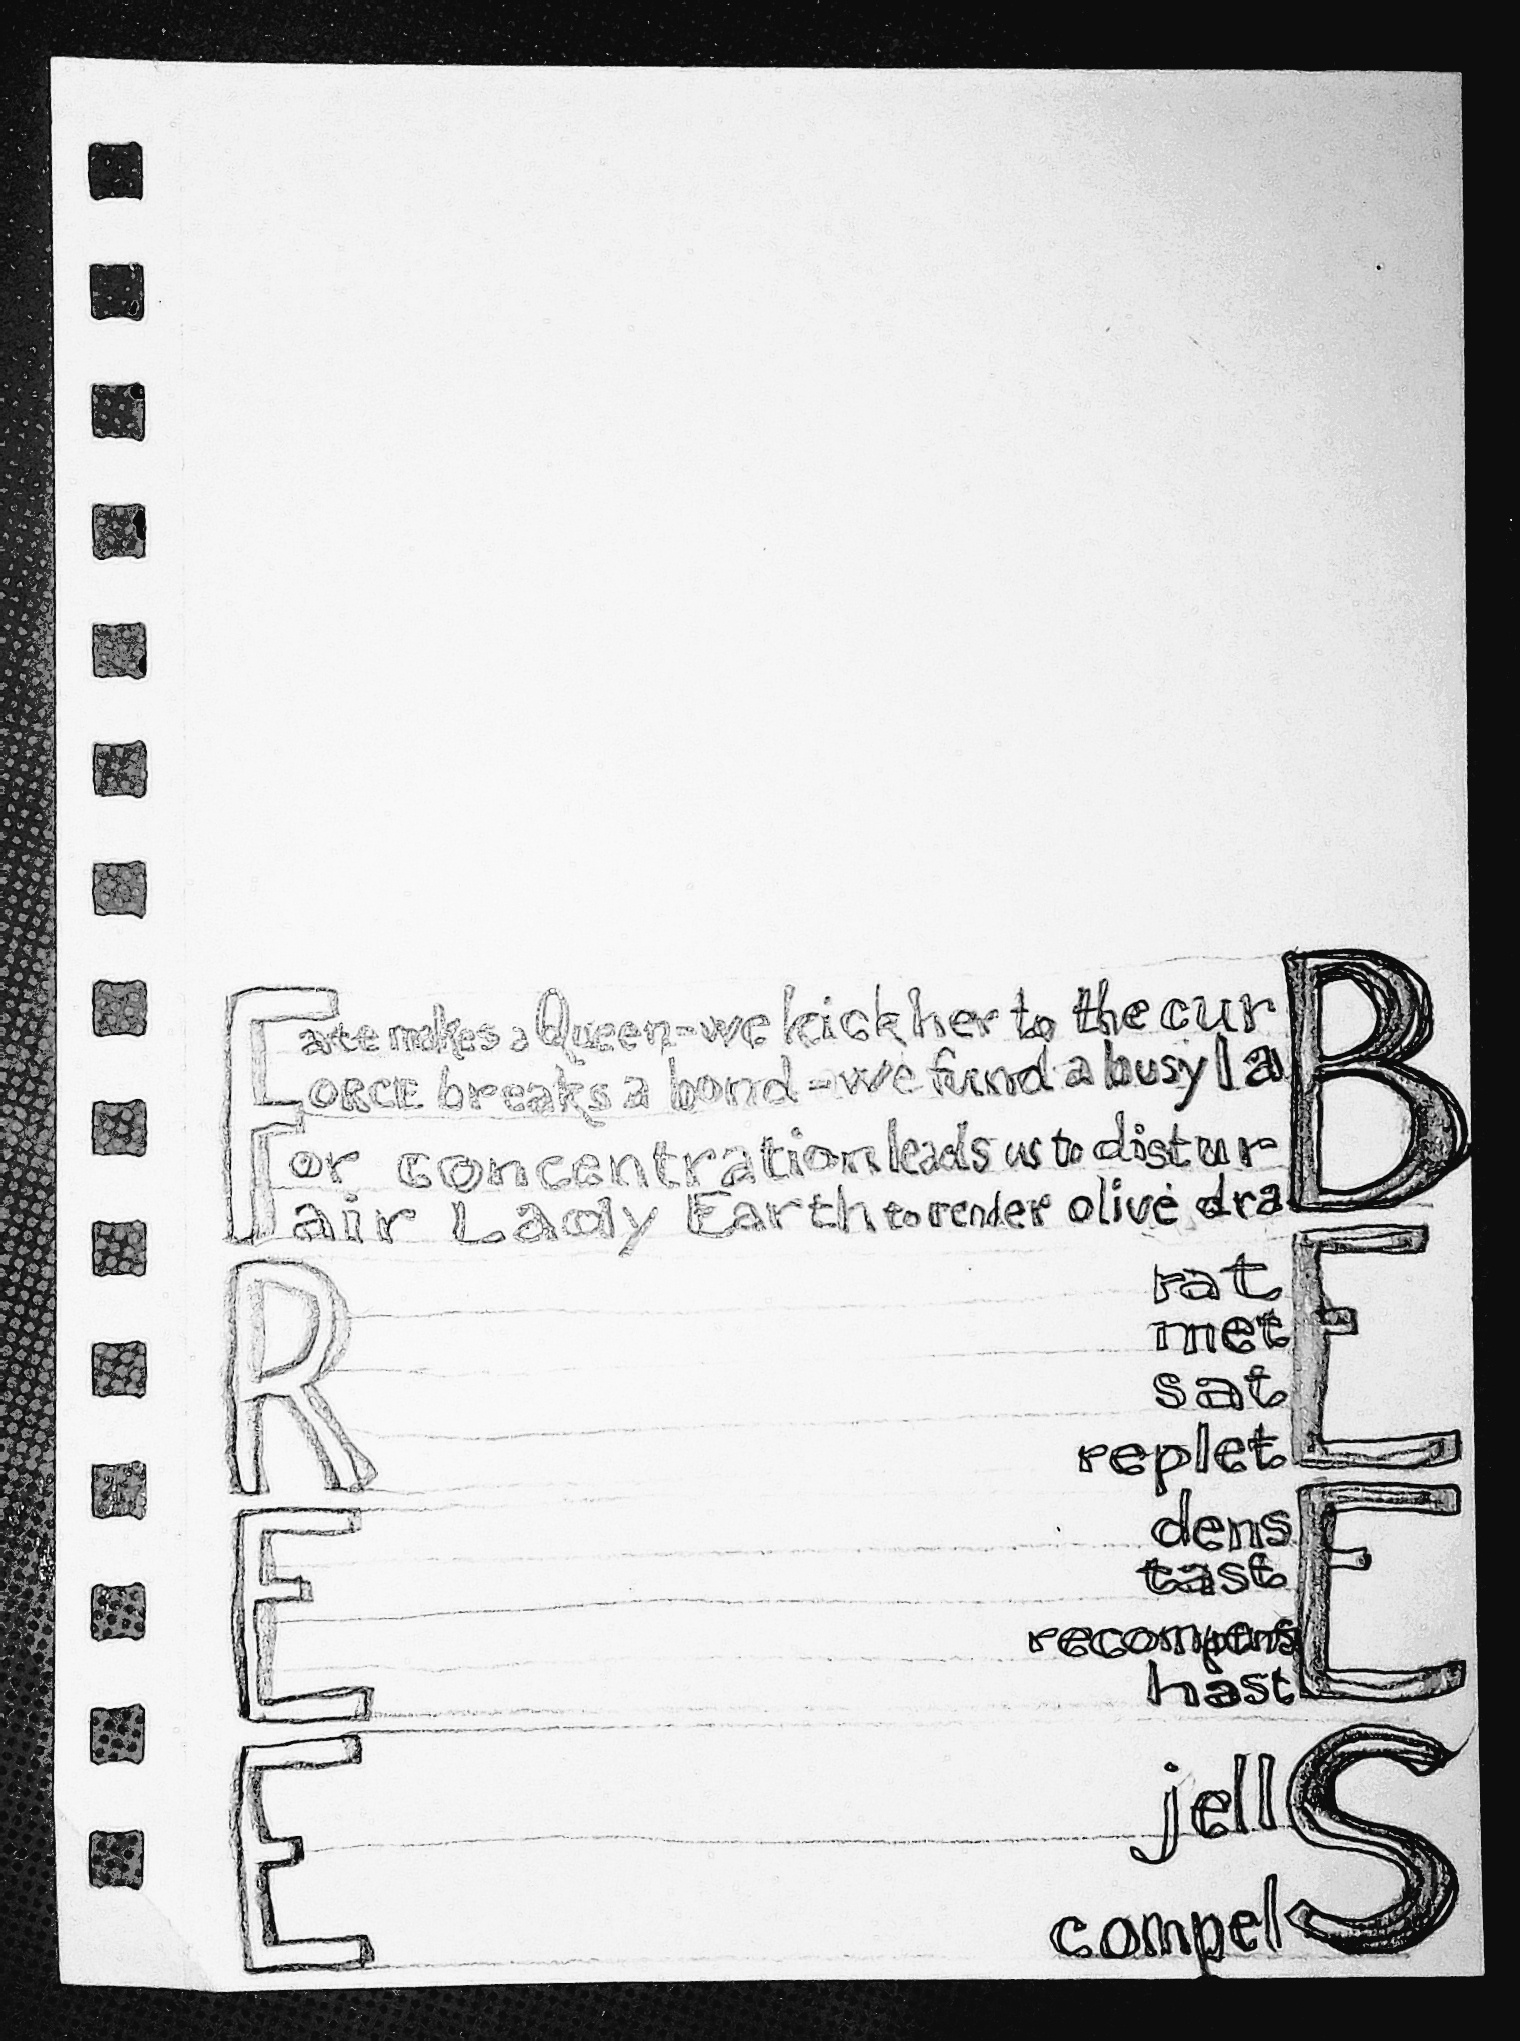 Fate makes a Queen-we kick her to the curB
FORCE breaks a bond-we fund a busy laB
For concentration leads us to disturB
Fair Lady Earth to render olive draB
R
ratE
metE
satE
repletE
E
densE
tastE
recompensE
hastE
E
jellS
compelS